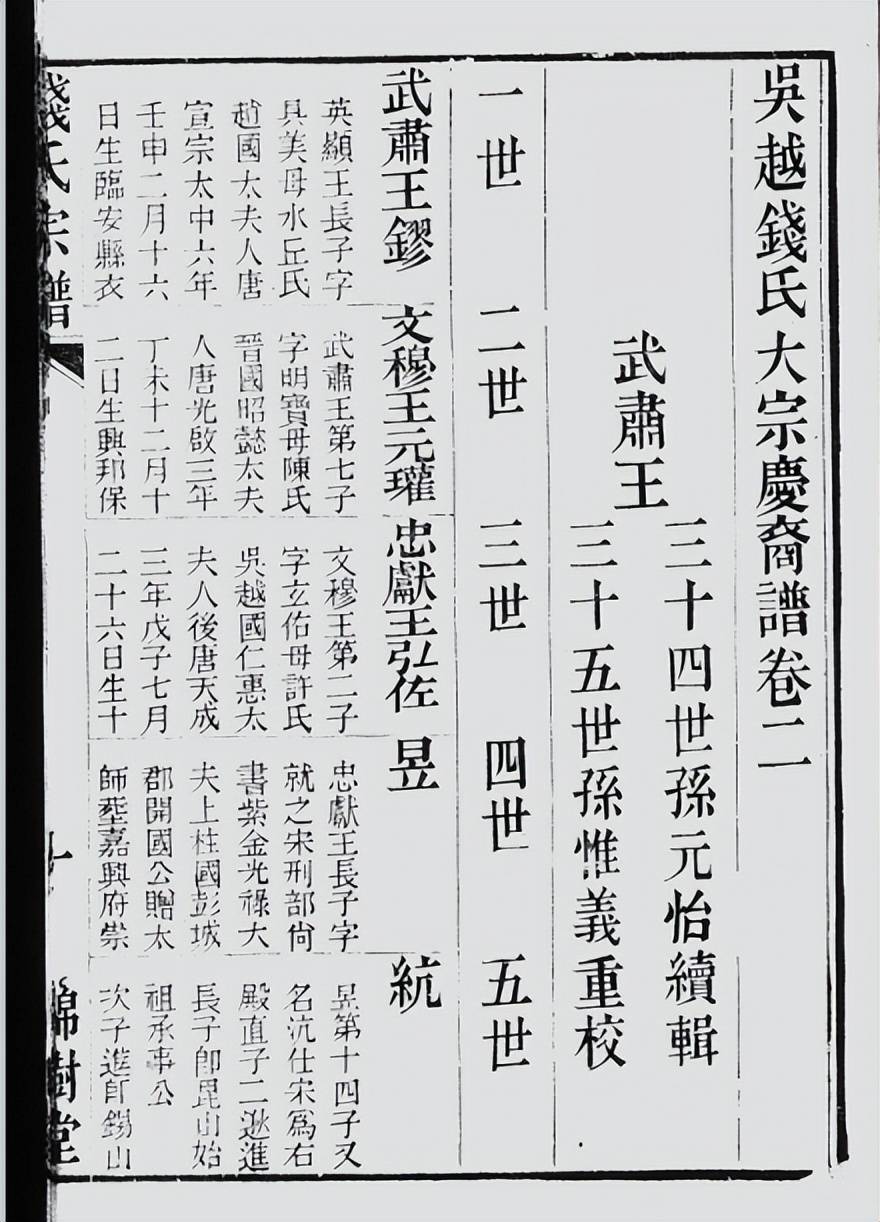 吳越錢氏大宗慶裔譜卷二
武肅王
三十四世孫元怡續輯
三十五世孫惟義重校
一世
二世
三世
四世
五世
武肅王鏐
英顯王長子字
具美母水丘氏
趙國太夫人唐
宣宗太中六年
壬申二月十六
日生臨安縣衣
文穆王元瓘
武肅王第七子
字明寶母陳氏
晉國昭懿太夫
人唐光啟三年
丁未十二月十
二日生興邦保
忠獻王弘佐
文穆王第二子
字立佑母許氏
吳越國仁惠太
夫人後唐天成
三年戊子七月
二十六日生十
昱
忠獻王長子字
就之宋刑部尚
書紫金光祿大
夫上柱國彭城
郡開國公贈太
師塟嘉興府崇
統
昱第十四子又
名沆仕宋爲右
殿直子二遜進
長子卽毘山始
祖承事公
次子進卽錫山
錢氏宗譜
錦樹堂